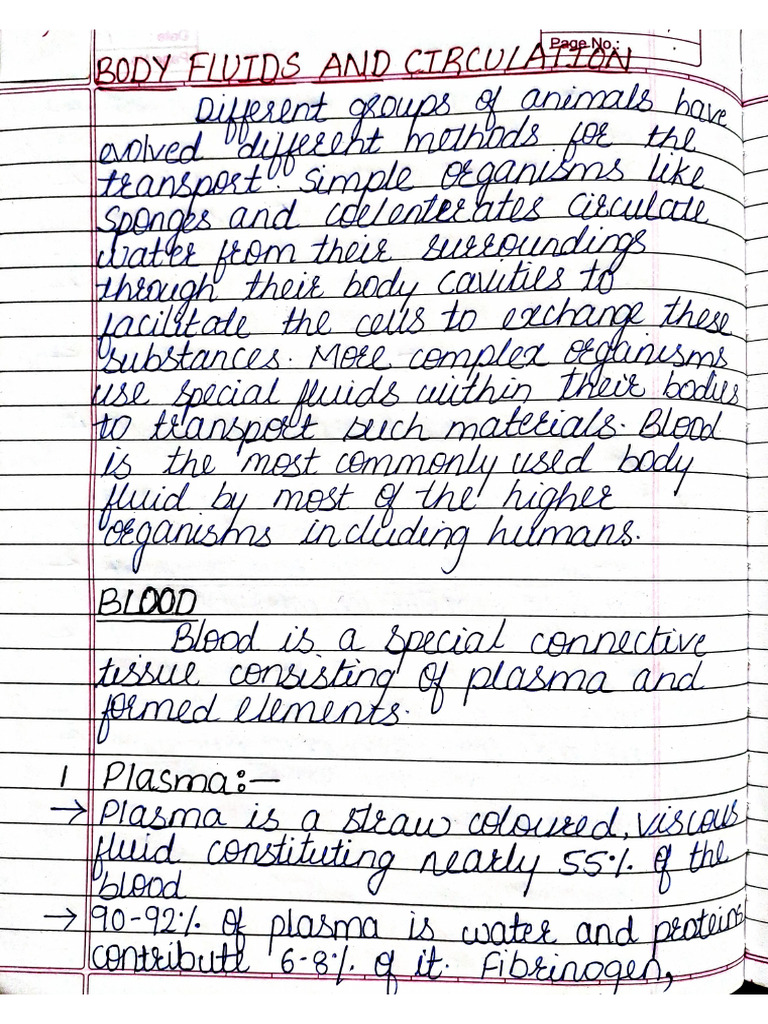 Page No.:
BODY FLUIDS AND CIRCULATION
Different groups of animals have
evolved different methods for the
transport. Simple organisms like
sponges and coelenterates circulate
water from their surroundings
through their body cavities to
facilitate the cells to exchange these
substances. More complex organisms
use special fluids within their bodies
to transport such materials. Blood
is the most commonly used body
fluid by most of the higher
organisms including humans.
BLOOD
Blood is a special connective
tissue consisting of plasma and
formed elements.
1 Plasma:—
→ Plasma is a straw coloured, viscous
fluid constituting nearly 55% of the
blood
→ 90-92% of plasma is water and proteins
contribute 6-8% of it. Fibrinogen,